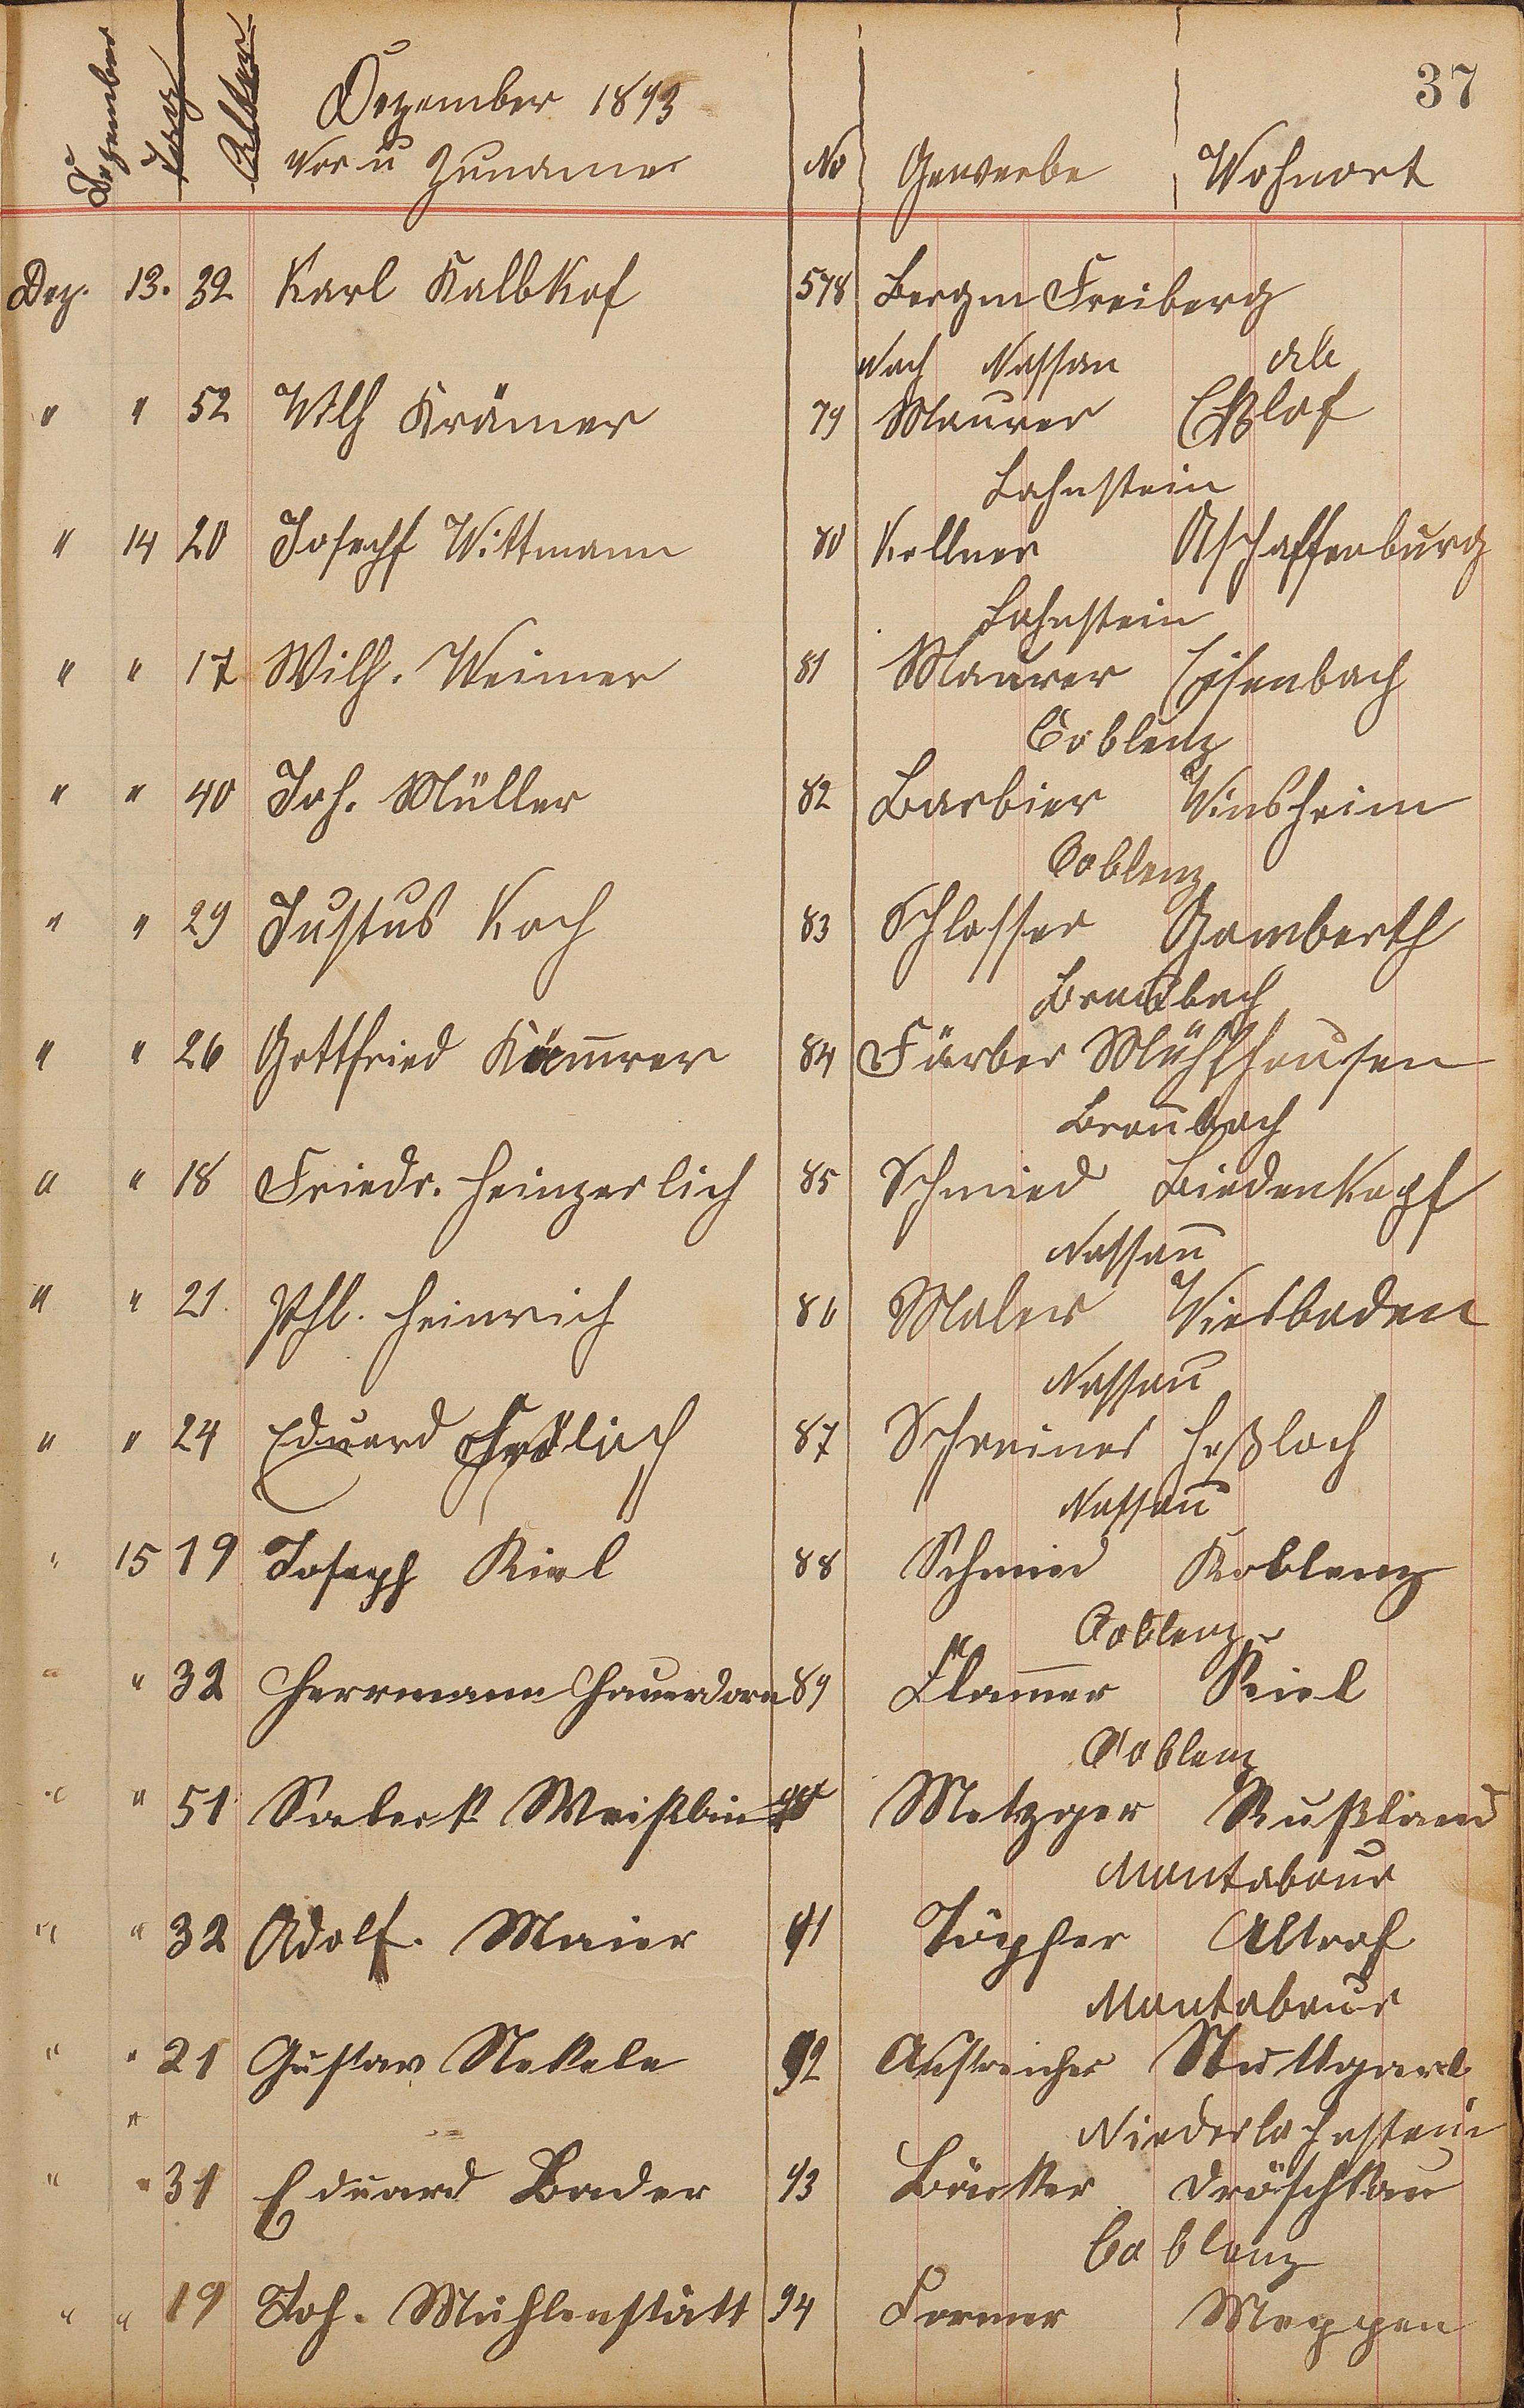 37
Dezember Tag Alter
Dezember 1893
Vor u Zuname No Gewerbe Wohnort
Dez. 13. 32 Karl Kalbkof 578 Bergm Freiberg
Nach Nassau
" " 52 Wlh Krämer 79 Maurer
Lahnstein
" 14 20 Josechf Wittmann 80 Kellner Aschaffenburg
Lahnstein
" " 17 Wilh. Weimer 81 Maurer Eisenbach
Coblenz
" " 40 Joh. Müller 82 Barbier Winsheim
Coblenz
" " 29 Justus Koch 83 Schlosser Gomberth
Braubach
" " 26 Gottfried Käm̅rer 84 Färber Mühlhausen
Braubach
" " 18 Friedr. Heinzerlich 85 Schmied Biedenkopf
Nassau
" " 21. Phl. Heinrich 86 Maler Wiesbaden
Nassau
" " 24 Eduard Frölich 87 Schreiner Heßloch
Nassau
" 15 19 Joseph Kiel 88 Schmied Koblenz
Coblenz
" " 32 Herrmann Hauerdorn 89 Kiel
Coblenz
" " 51 Metzger Rußland
Montabaur
" " 32 Adolf. Maier 91 Töpfer Altrof
Montabaur
" " 21 Gustav Stekele 92 Anstreicher Stuttgart
" Niederlahnstein
" " 31 Eduard Bader 93 Bäcker Dröschkau
Coblenz
" " 19 Joh. Mühlenstätt 94 Former Meppen